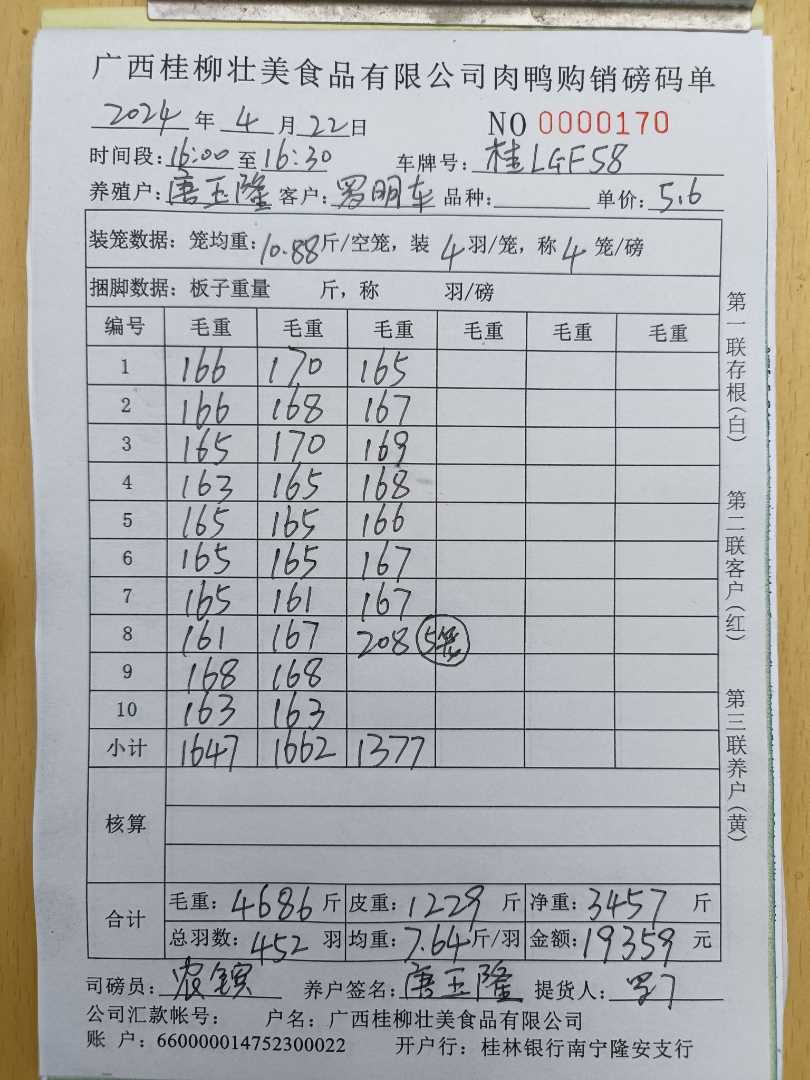 广西桂柳壮美食品有限公司肉鸭购销磅码单
2024 年 4 月 22 日 NO 0000170
时间段: 16:00 至 16:30 车牌号: 桂LGF58
养殖户: 唐玉隆 客户: 罗明车 品种: 单价: 5.6
装笼数据: 笼均重: 10.88 斤/空笼, 装 4 羽/笼, 称 4 笼/磅
捆脚数据: 板子重量 斤, 称 羽/磅
编号 毛重 毛重 毛重 毛重 毛重 毛重
1 166 170 165
2 166 168 167
3 165 170 169
4 163 165 168
5 165 165 166
6 165 165 167
7 165 161 167
8 161 167 208 5笼
9 168 168
10 163 163
小计 1647 1662 1377
核算
合计 毛重: 4686 斤 皮重: 1229 斤 净重: 3457 斤
总羽数: 452 羽 均重: 7.64 斤/羽 金额: 19359 元
司磅员: 农 养户签名: 唐玉隆 提货人:
公司汇款帐号: 户名: 广西桂柳壮美食品有限公司
账 户: 660000014752300022 开户行: 桂林银行南宁隆安支行
第一联存根(白)
第二联客户(红)
第三联养户(黄)